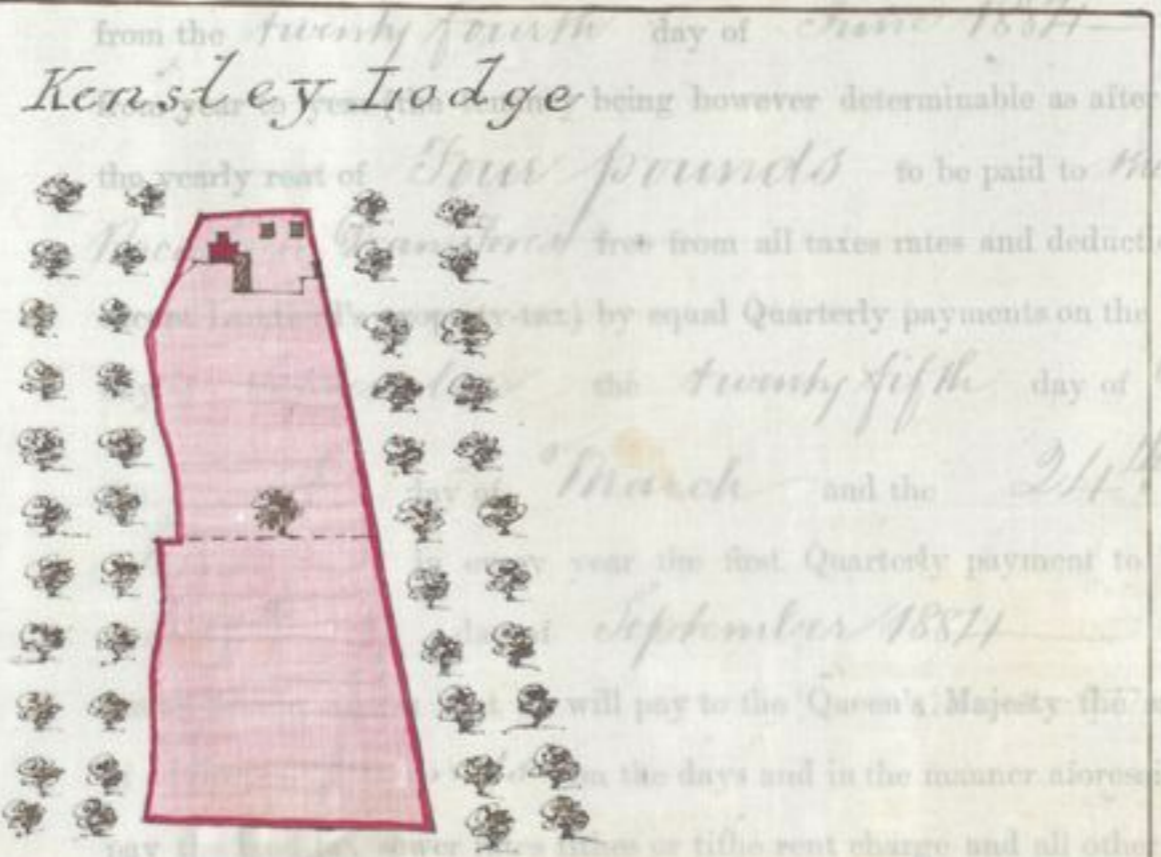 from the twenty fourth day of June 1884
Kensley Lodge
from year to year (the tenancy being however determinable as after
the yearly rent of Four pounds to be paid to
free from all taxes rates and deducti
Landlord's property-tax) by equal Quarterly payments on the
the twenty fifth day of
day of March and the 24th
in every year the first Quarterly payment to
day of September 1884
will pay to the Queen's Majesty the
on the days and in the manner aforesai
pay the sewer rates tithes or tithe rent charge and all other